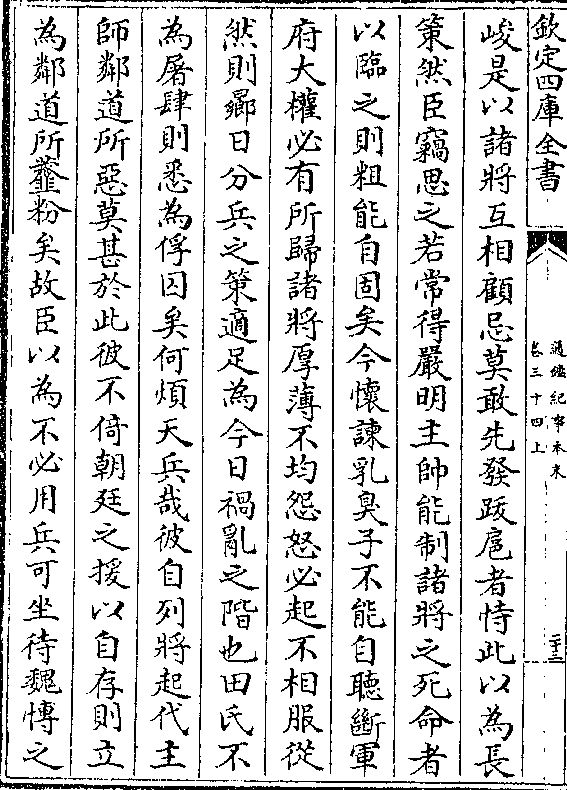 欽定四庫全書
通鑑紀事本末
卷三十四上
二十三
峻是以諸將互相顧忌莫敢先發跋扈者恃此以為長
策然臣竊思之若常得嚴明主帥能制諸將之死命者
以臨之則粗能自固矣今懷諫乳臭子不能自聽斷軍
府大權必有所歸諸將厚薄不均怨怒必起不相服從
然則曏日分兵之策適足為今日禍亂之階也田氏不
為屠肆則悉為俘囚矣何煩天兵哉彼自列將起代主
師鄰道所惡莫甚於此彼不倚朝廷之援以自存則立
為鄰道所虀粉矣故臣以為不必用兵可坐待魏博之